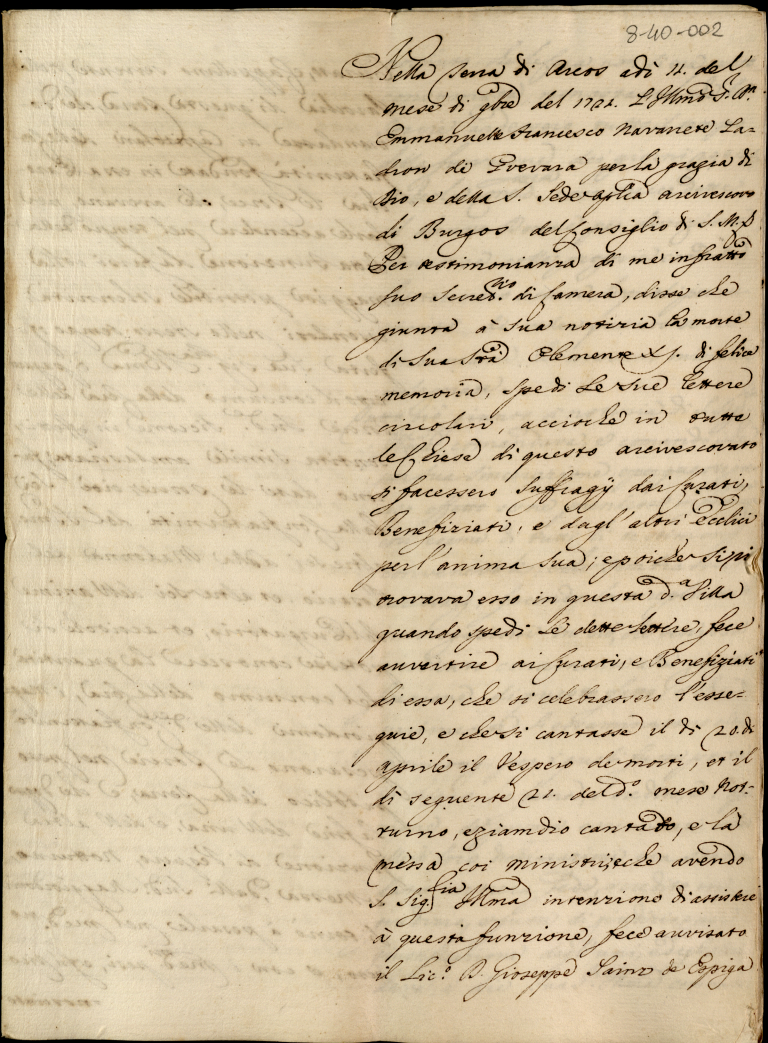 8-40-002
Nella Terra di Arcos adi 11. del
mese di 9bre del 1721. L'Illmo Sr. Dn.
Emmanuelle Francesco Navarrete La-
dron de Guevara per la grazia di
Dio, e della S. Sede aplica arcivescovo
di Burgos del Consiglio di S. M. &
Per testimonianza di me infratto
suo Secretrio. di Camera, disse che
giunta à sua notizia la morte
di Sua Stà Clemente XI. di felice
memoria, spedi le sue lettere
circolari, acciochè in tutte
le Chiese di questo arcivescovato
si facessero suffragij dai Curati,
Benefiziati, e dagl' altri Ecclici
per l'anima sua; e poiche si ri
trovava esso in questa da. Villa
quando spedi le dette lettere, fece
avvertire ai Curati, e Benefiziati
di essa, che si celebrassero l'esse-
quie, e che si cantasse il di 20. di
Aprile il Vespero de morti, et il
di seguente 21. del do. mese Not-
turno, eziamdio cantato, e la
messa coi ministri; e che avendo
S. Sigria Illma intenzione di assistere
à questa funzione, fece avvisato
il Lico. D. Gioseppe Sainz de Espiga